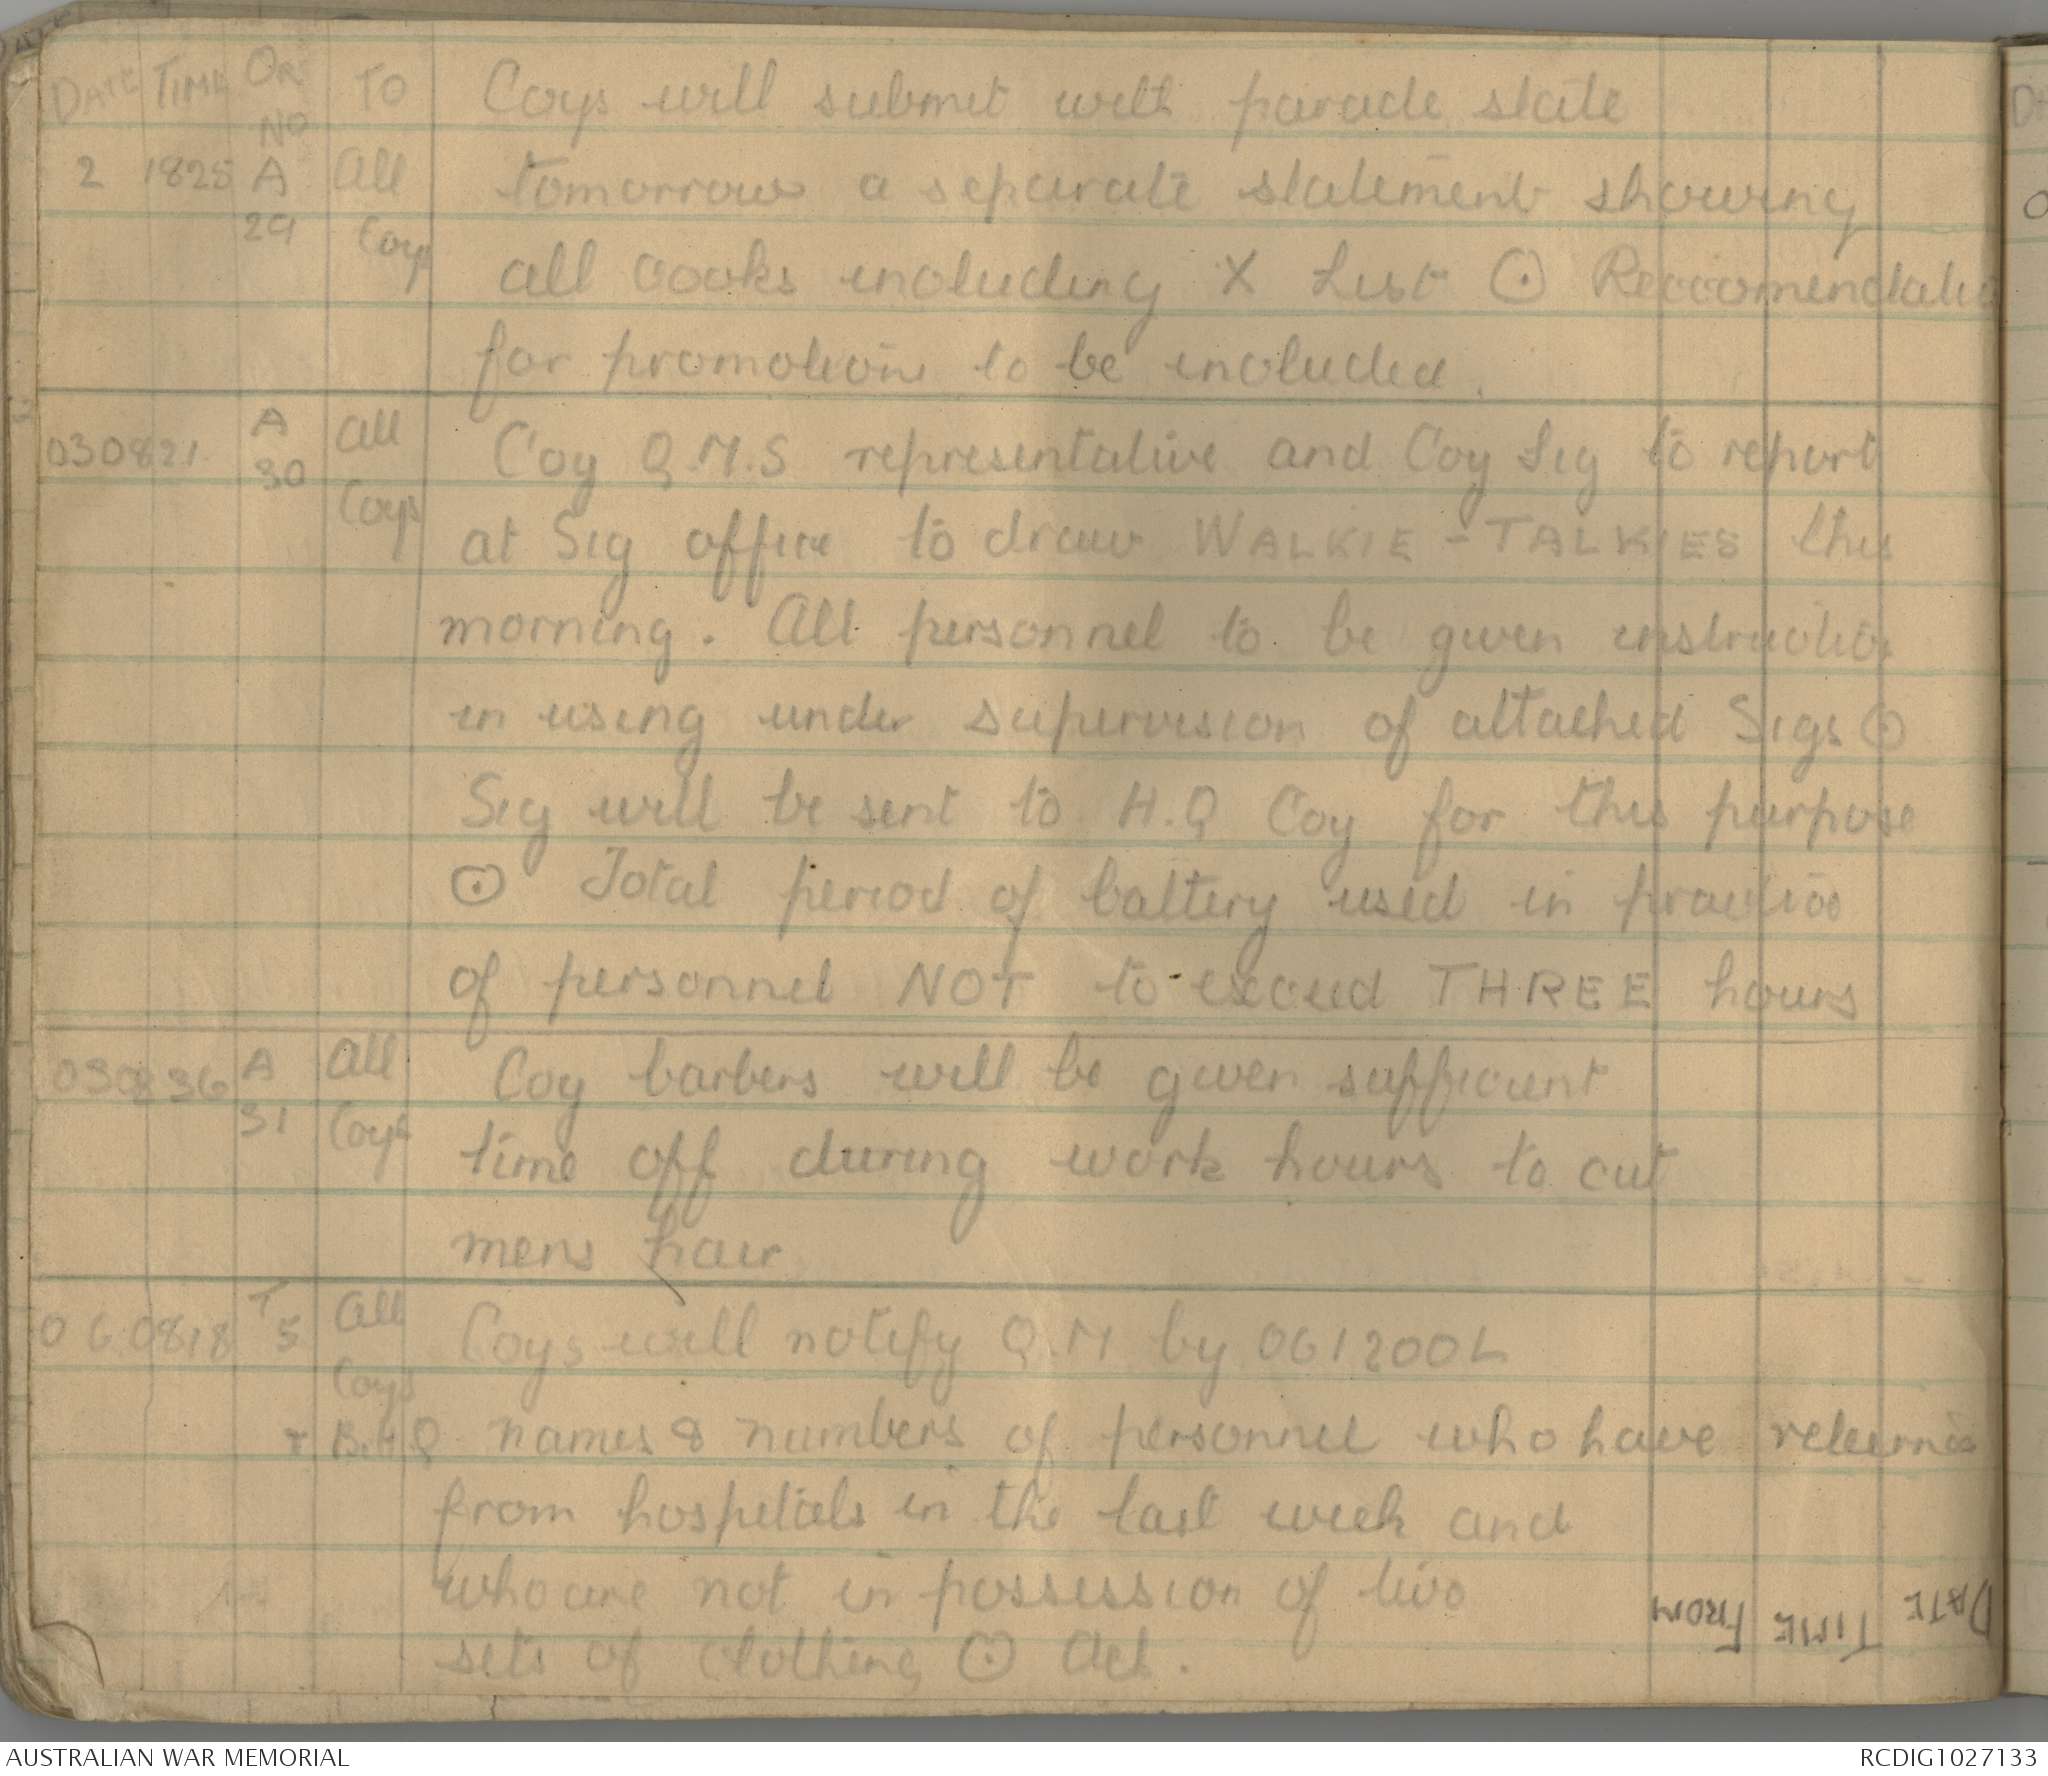 DATE TIME OR NO TO Coys will submit with parade state
2 1825 A 29 All Coys tomorrow a separate statement showing
all cooks including X List ⊙ Reccomendatio
for promotion to be included.
030821 A 30 All Coys Coy Q.M.S representative and Coy Sig to report
at Sig office to draw WALKIE-TALKIES this
morning. All personnel to be given instruction
in using under supervision of attached Sigs ⊙
Sig will be sent to H.Q Coy for this purpose
⊙ Total period of battery used in practice
of personnel NOT to exceed THREE hours
030836 A 31 All Coys Coy barbers will be given sufficient
time off during work hours to cut
mens hair
060818 T 5 All Coys Coys will notify Q.M by 061200L
B.H Q names & numbers of personnel who have returned
from hospitals in the last week and
who are not in possession of two
sets of clothing ⊙ Ack.
DATE TIME FROM
AUSTRALIAN WAR MEMORIAL
RCDIG1027133